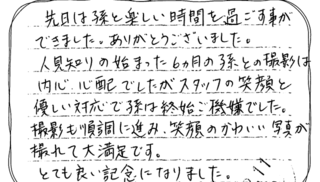 先日は孫と楽しい時間を過ごす事が
できました。ありがとうございました。
人見知りの始まった6ヵ月の孫との撮影は
内心、心配でしたがスタッフの笑顔と
優しい対応で孫は終始ご機嫌でした。
撮影も順調に進み、笑顔のかわいい写真が
撮れて大満足です。
とても良い記念になりました。